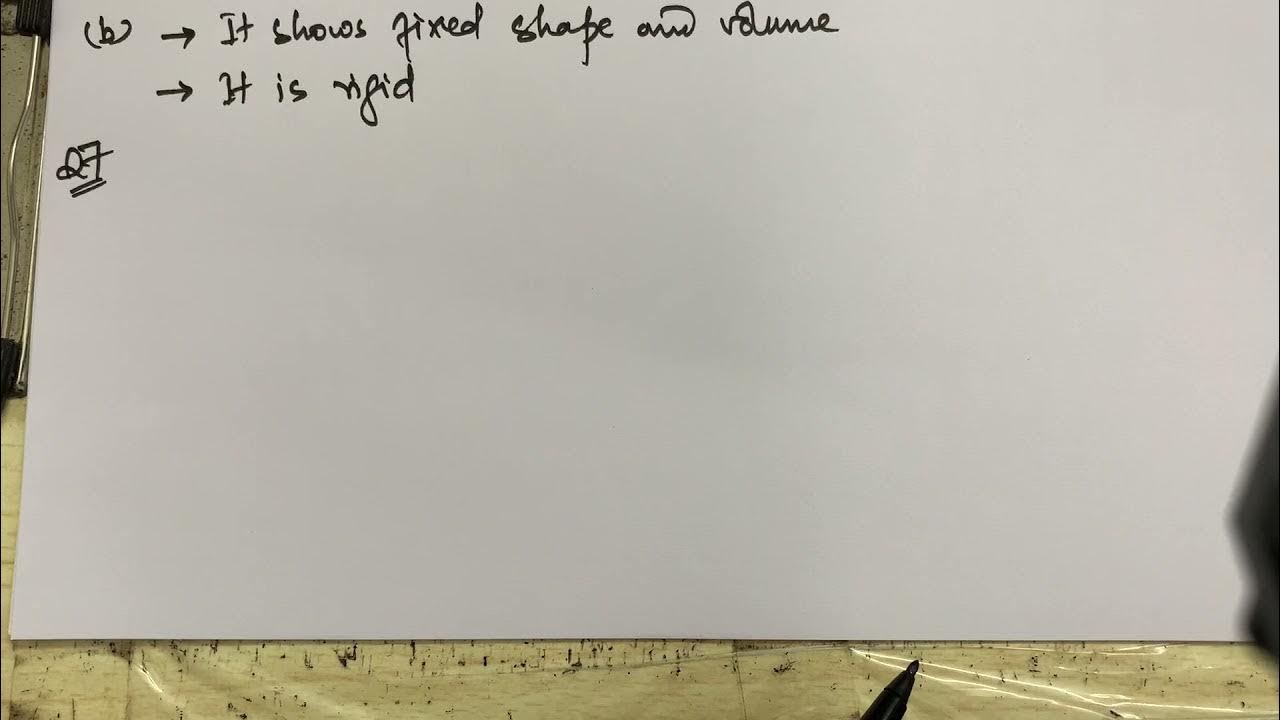 (b) → It shows fixed shape and volume
→ It is rigid
27